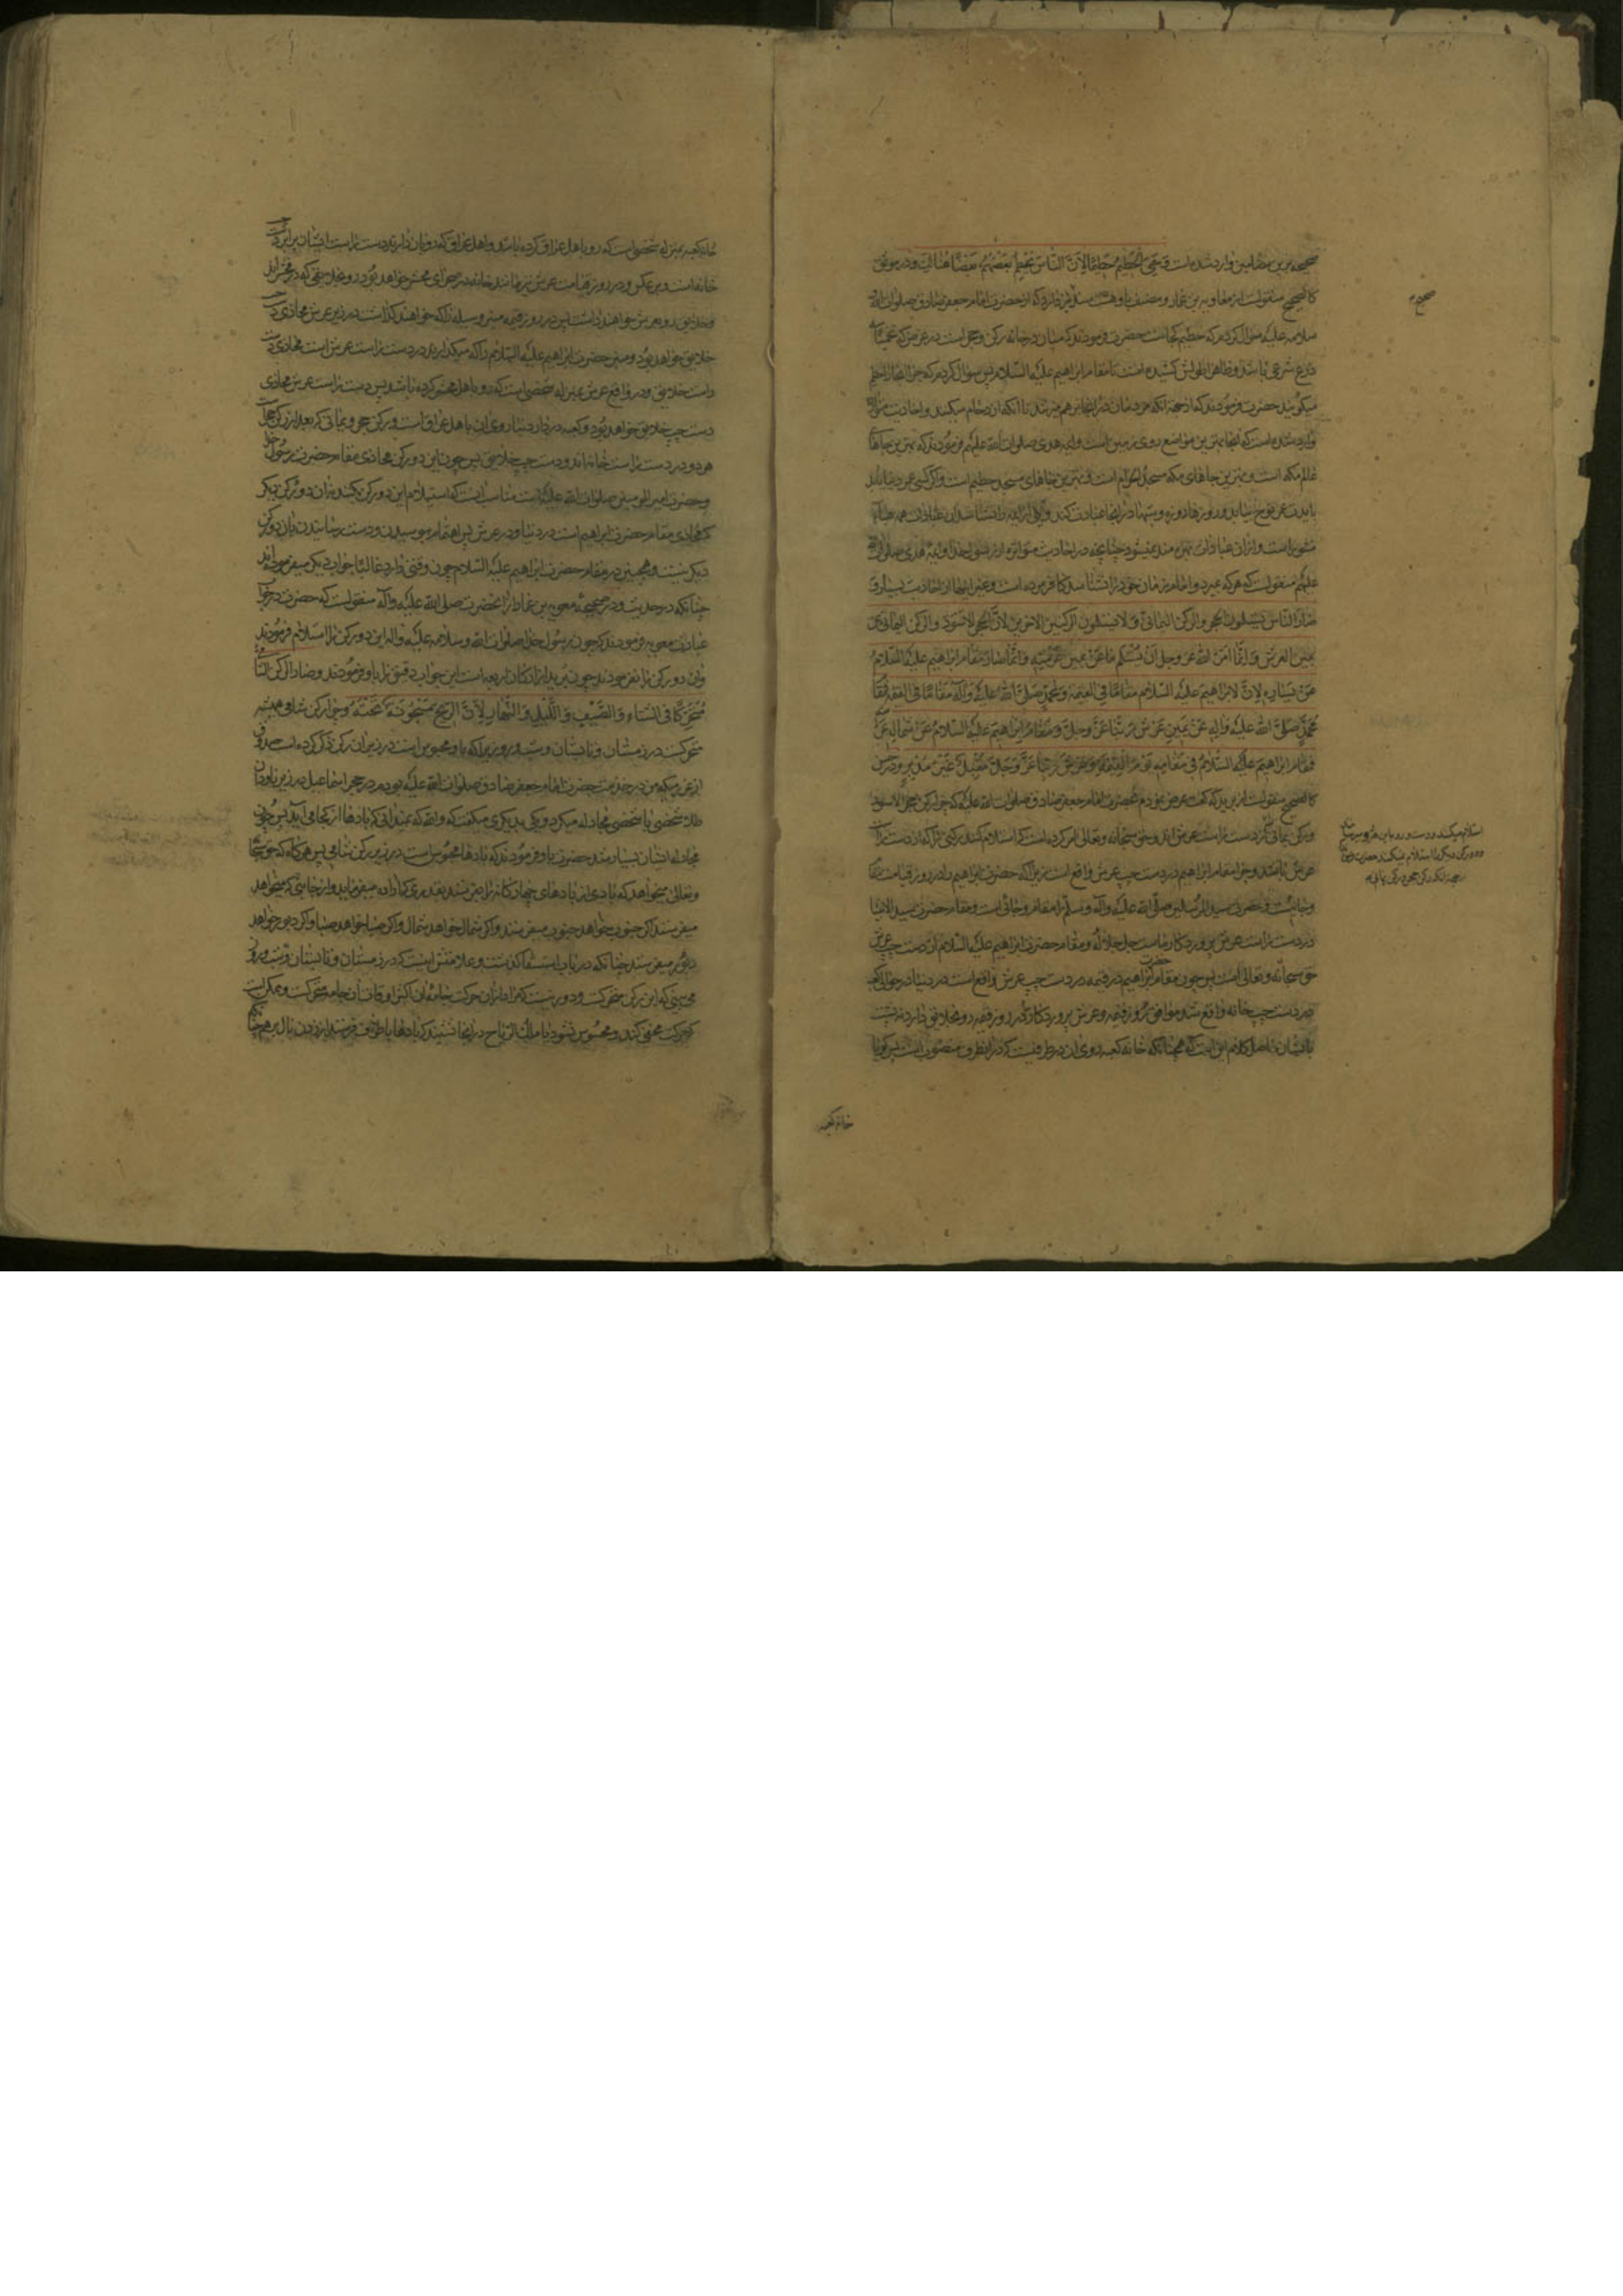 صحیحه برین مضامین وارد شده است و سمّی الحطیم حطیما لانّ الناس یحطم بعضهم بعضا هنالک و در موثق
کالصحیح منقولست از معاویه بن عمار که از حضرت امام جعفر صادق صلوات الله و
سلامه علیه سؤال کردم که حطیم کجاست حضرت فرمودند که میان در خانه و رکن حجر است
ذرع شرعی باشد و ظاهرا طولش کشیده است تا مقام ابراهیم علیه السلام پس سؤال کردم که چرا انجا را حطیم
میگویند حضرت فرمودند که از جهة انکه مردمان در انجا بر هم میزنند تا انکه ازدحام میکنند و احادیث
وارد شده است که انجا بهترین مواضع روی زمین است و ایمه هدی صلوات الله علیهم فرمودند که بهترین جاهای
عالم مکه است و بهترین جاهای مکه مسجد الحرام است و بهترین جاهای مسجد حطیم است و اگر کسی عمر دنیا بیابد
یا بقدر عمر نوح بیابد و روزها روزه و شبها در انجا عبادت کند و یکی از ایمه را نشناسد ان عبادات همه هباء
منثورا است و از ان عبادات بهره مند نمیشود چنانچه در احادیث متواتره از رسول خدا و ایمه هدی صلوات الله
علیهم منقولست که هر که بمیرد و امام زمان خود را نشناسد کافر مرده است و غیر اینها از احادیث بسیار و
صار الناس یستلمون الحجر و الرکن الیمانی و لا یستلمون الرکنین الاخرین لانّ الحجر الاسود و الرکن الیمانی عن
یمین العرش و انّما امر الله عز و جل ان یستلم ما عن یمین عرشه و انّما صار مقام ابراهیم علیه السلام
عن یساره لانّ لابراهیم علیه السلام مقاما فی القیمه و لمحمد صلی الله علیه و آله مقاما فی القیمه فمقام
محمد صلی الله علیه و آله عن یمین عرش ربنا عز و جل و مقام ابراهیم علیه السلام عن شمال عرشه
فمقام ابراهیم علیه السلام فی مقامه یوم القیمه و عرش ربنا عز و جل مقبل غیر مدبر و در حسن
کالصحیح منقولست از برید که گفت عرض نمودم بحضرت امام جعفر صادق صلوات الله علیه که چرا رکن حجر الاسود
و رکن یمانی که در دست راست عرش اند و حق سبحانه و تعالی امر کرده است که استلام کنند رکنی را که از دست راست
عرش باشد و چرا مقام ابراهیم در دست چپ عرش واقع است زیرا که حضرت ابراهیم را در روز قیامت مقام
و جاییست و حضرت سید المرسلین صلی الله علیه و آله و سلم را مقام و جائی است و مقام حضرت سید الانبیا
در دست راست عرش پروردگار ماست جل جلاله و مقام حضرت ابراهیم علیه السلام از دست چپ عرش
حق سبحانه و تعالی است پس چون مقام حضرت ابراهیم در قیمه در دست چپ عرش واقع است در دنیا در حوالی کعبه
در دست چپ خانه واقع شد موافق روز قیمه و عرش پروردگار که در روز قیمه رو بخلایق دارد نه پشت
بایشان حاصل کلام این است که همچنانکه خانه کعبه روی ان در طرفیست که در انطرف منصوب است پس گویا
صحیح
استلام میکنند
دو رکن دیگر را استلام نمیکنند حضرت فرمود
خانه کعبه
خانه کعبه بمنزله شخصی است که رو باهل عراق کرده باشد و اهل عراق که رو بان دارند دست راست ایشان برابر دست چپ
خانه است و بر عکس و در روز قیامت عرش نیز مانند خانه در صحرای محشر خواهد بود رو بخلایقی که در محشر اند
و خلایق رو بعرش خواهند داشت پس در روز قیمه منبر وسیله را که خواهند گذاشت در زیر عرش محاذی دست چپ
خلایق خواهد بود و منبر حضرت ابراهیم علیه السلام را که میگذارند در دست راست عرش است محاذی دست
راست خلایق و در واقع عرش بمنزله شخصی است که رو باهل محشر کرده باشد پس دست راست عرش محاذی
دست چپ خلایق خواهد بود و کعبه در دار دنیا روی ان باهل عراق است و رکن حجر و یمانی که بعد از رکن حجر است
هر دو در دست راست خانه اند و دست چپ خلایق پس چون این دو رکن محاذی مقام حضرت رسول خدا
و حضرت امیر المومنین صلوات الله علیهما است مناسب اینست که استلام این دو رکن بکنند نه ان دو رکن دیگر
که محاذی مقام حضرت ابراهیم است در دنیا و در عرش پس اهتمام ببوسیدن و دست رسانیدن بان دو رکن
دیگر نیست و همچنین در مقام حضرت ابراهیم علیه السلام چون وقتی وارد غالبا جواب دیگر میفرموده اند
چنانکه در حدیث و در صحیحه معویه بن عمار از انحضرت صلی الله علیه و آله منقولست که حضرت در جواب
عبارت معویه فرمودند که چون رسول خدا صلوات الله و سلامه علیه و اله این دو رکن را استلام فرمودند
و ان دو رکن را نفرمودند چون برید از ارکان اربعه است این جواب دقیق را باو فرمودند و صار الرکن الشامی
متحرکا فی الشتاء و الصیف و اللیل و النهار لانّ الریح مسجونة تحته و چرا رکن شامی همیشه
متحرکست در زمستان و تابستان و شب و روز زیرا که باد محبوس است در زیر ان رکن ذکر کرده است صدوق
از عزرمی که من در خدمت حضرت امام جعفر صادق صلوات الله علیه بودم در حجر اسماعیل در زیر ناودان
طلا شخصی با شخصی مجادله میکرد و یکی بدیگری میگفت که والله که نمیدانی که بادها از کجا می آید پس چون
مجادله ایشان بسیار شد حضرت باو فرمودند که بادها محبوس است در زیر رکن شامی پس هرگاه که حق سبحانه
و تعالی میخواهد که بادی از بادهای چهارگانه را بفرستد بقدری که اراده میفرماید و از جائی که میخواهد
میفرستد اگر جنوب خواهد جنوب میفرستد و اگر شمال خواهد شمال و اگر صبا خواهد صبا و اگر دبور خواهد
دبور میفرستد چنانکه در باب استسقا گذشت و علامتش اینست که در زمستان و تابستان و شب و روز
می بینی که این رکن متحرکست و دور نیست که مراد از ان حرکت جامه ان اکثر اوقات ان جامه متحرکست و ممکن است
که حرکت مخفی کند و محسوس نشود یا ملک الریاح در انجا نشیند که بادها باطراف فرستد از زدن بال بر هم چنانکه